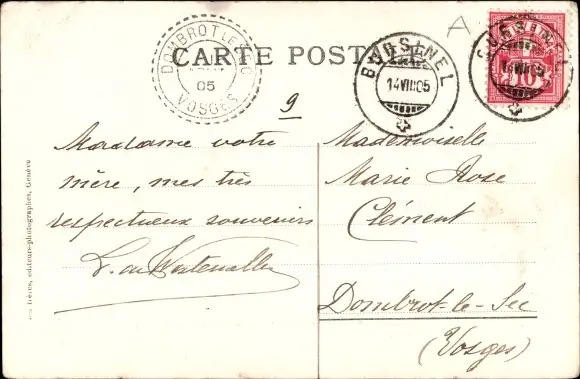 CARTE POST
DOMBROT-LE-SEC
05
VOSGES
BURSINEL
14 VIII 05
BURSINEL
14 VIII 05
10
A
9
Madame votre
mère, mes très
respectueux souvenirs
Mademoiselle
Marie Rose
Clément
Dombrot-le-Sec
(Vosges)
frères, editeurs-photographes, Genève